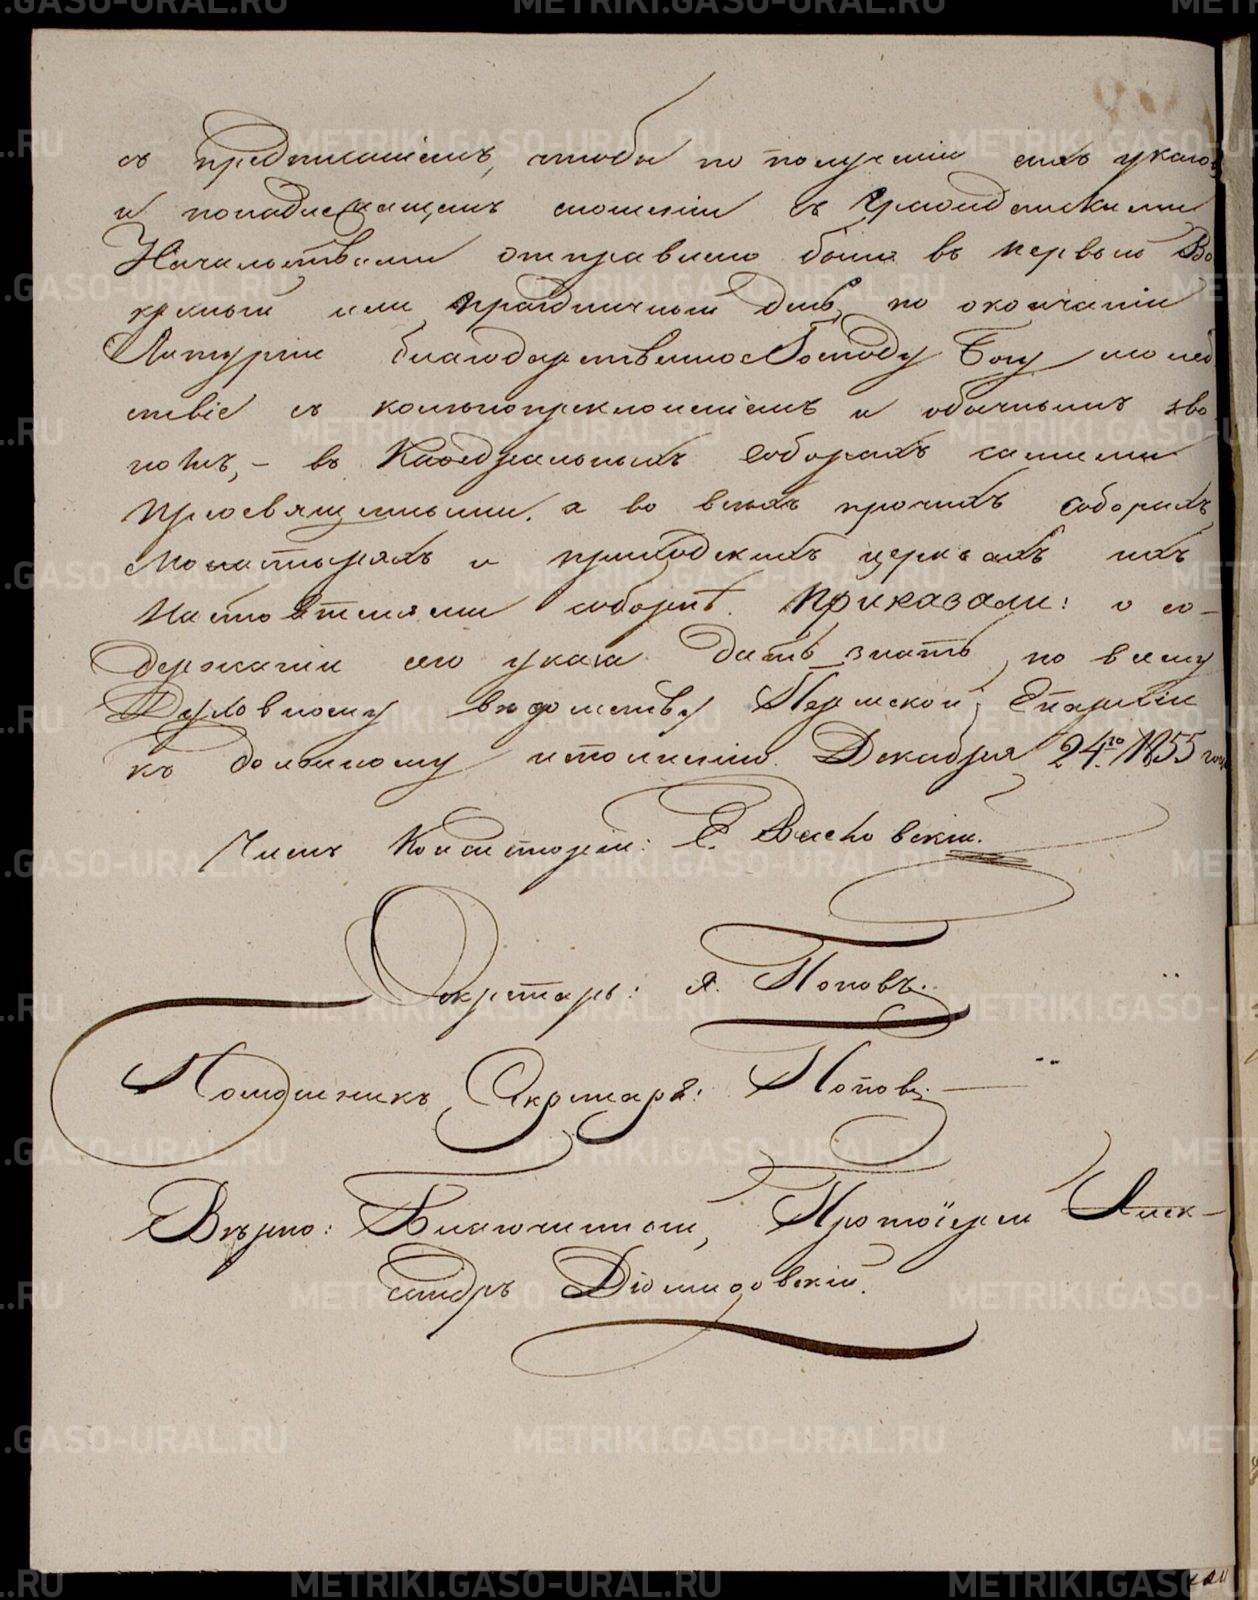 съ предписаніемъ, чтобы по полученіи сихъ указовъ
и понадлежащемъ сношеніи съ Гражданскими
Начальствами отправлено было въ первый Во
кресный или праздничный день, по окончаніи
Литургіи благодарственное Господу Богу молеб
ствіе съ колѣнопреклоненіемъ и обычнымъ зво
номъ, – въ Каѳедральныхъ Соборахъ самими
Преосвященными, а во всѣхъ прочихъ соборахъ
Монастыряхъ и приходскихъ церквахъ ихъ
Настоятелями соборнѣ. Приказали: о со-
держаніи сего указа дать знать по всему
Духовному вѣдомству Пермской Епархіи
къ должному исполненію. Декабря 24го 1855 года
Членъ Консисторіи:
Секретарь: Я. Поповъ.
Помошникъ Секретаря: Поповъ.
Вѣрно: Благочинный, Протоіерей Алек-
сандръ Діомидовскій.
METRIKI.GASO-URAL.RU